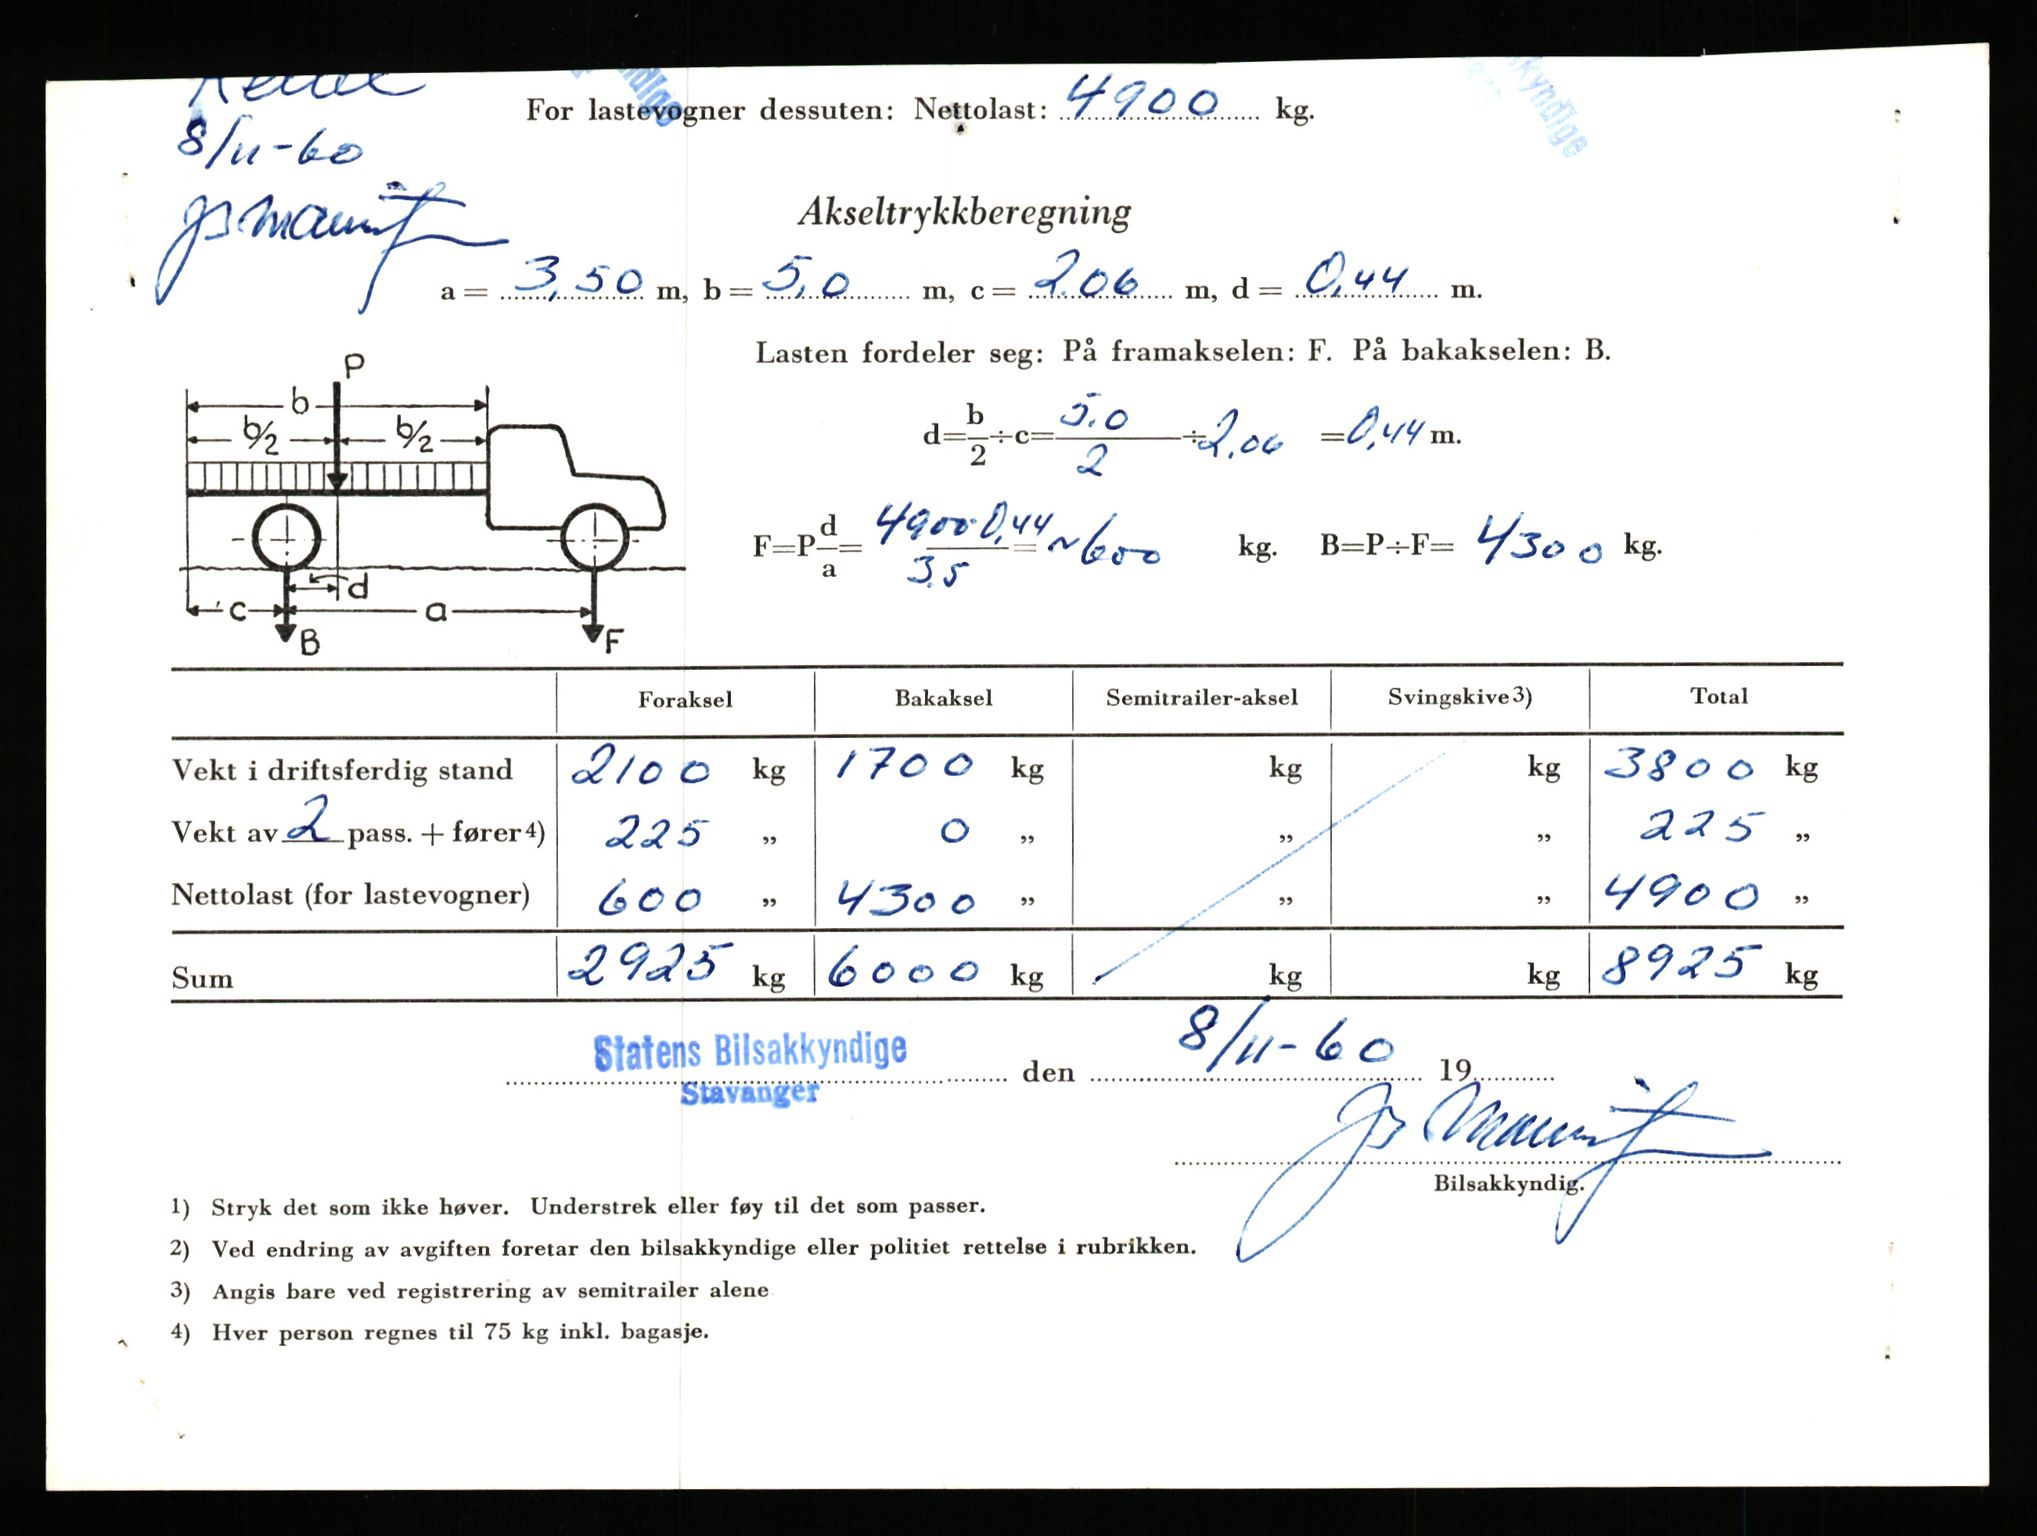 For lastevogner dessuten: Nettolast: 4900 kg.
8/11-60
kyndige
Akseltrykkberegning
a = 3,50 m, b = 5,0 m, c = 2.06 m, d = 0,44 m.
Lasten fordeler seg: På framakselen: F. På bakakselen: B.
P
b
b/2 b/2
d = b/2 ÷ c = 5,0/2 ÷ 2,06 = 0,44 m.
F=P d/a = 4900·0,44/3,5 = ~600 kg. B=P÷F= 4300 kg.
c d a
B F
Foraksel Bakaksel Semitrailer-aksel Svingskive 3) Total
Vekt i driftsferdig stand 2100 kg 1700 kg kg kg 3800 kg
Vekt av 2 pass. + fører 4) 225 „ 0 „ „ „ 225 „
Nettolast (for lastevogner) 600 „ 4300 „ „ „ 4900 „
Sum 2925 kg 6000 kg kg kg 8925 kg
Statens Bilsakkyndige
Stavanger
den 8/11-60 19
Bilsakkyndig.
1) Stryk det som ikke høver. Understrek eller føy til det som passer.
2) Ved endring av avgiften foretar den bilsakkyndige eller politiet rettelse i rubrikken.
3) Angis bare ved registrering av semitrailer alene
4) Hver person regnes til 75 kg inkl. bagasje.